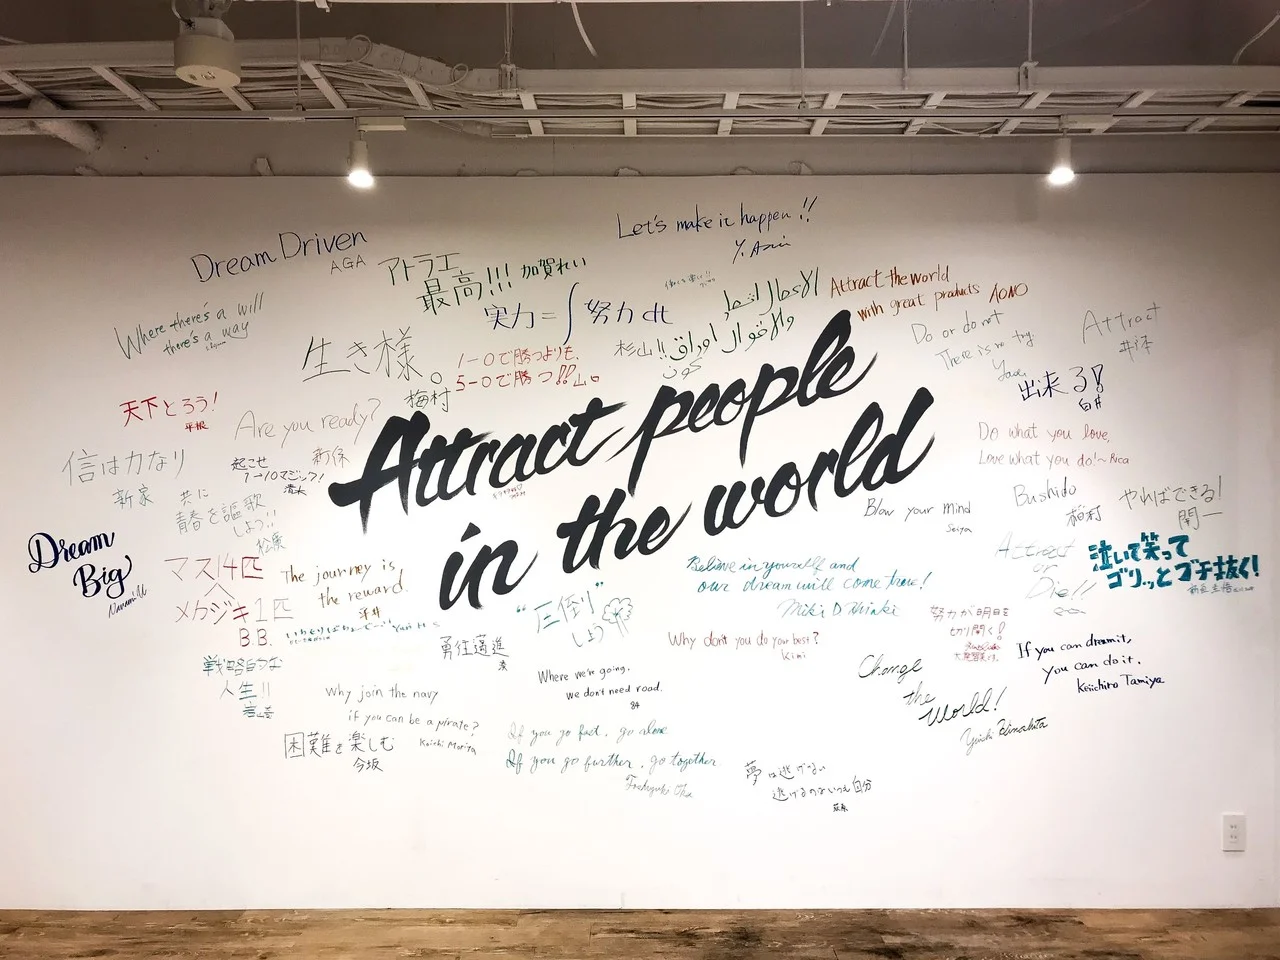 Let's make it happen!!
Dream Driven
AGA
アトラエ
最高!!! 加賀れい
Attract the world
with great products AONO
Where there's a will
there's a way
実力=∫努力dt
杉山!!
生き様。
梅村
1-0で勝つよりも、
5-0で勝つ!! 山口
Do or do not
There is no try
Attract
出来る!
白井
天下とろう!
平根
Are you ready?
新保
Attract people
in the world
Do what you love,
Love what you do!~Rica
信は力なり
新家
起こせ
共に
青春を謳歌
しよう!!
松原
Blow your mind
Seiya
Bushido
稲村
やればできる!
開一
Dream
Big
マスト4匹
メカジキ1匹
B.B.
The journey is
the reward.
平井
"圧倒"
しよう
Believe in yourself and
our dream will come true!
Attract
or
Die!!
泣いて笑って
ゴリっとブチ抜く!
努力が明日を
切り開く!
勇往邁進
Why don't you do your best?
Kimi
If you can dream it,
you can do it.
Keiichiro Tamiya
戦略的な
人生!!
Where we're going,
we don't need road.
84
Change
the
world!
Why join the navy
if you can be a pirate?
Koichi Morita
困難を楽しむ
今坂
If you go fast, go alone
If you go further, go together
夢は逃げない
逃げるのはいつも自分